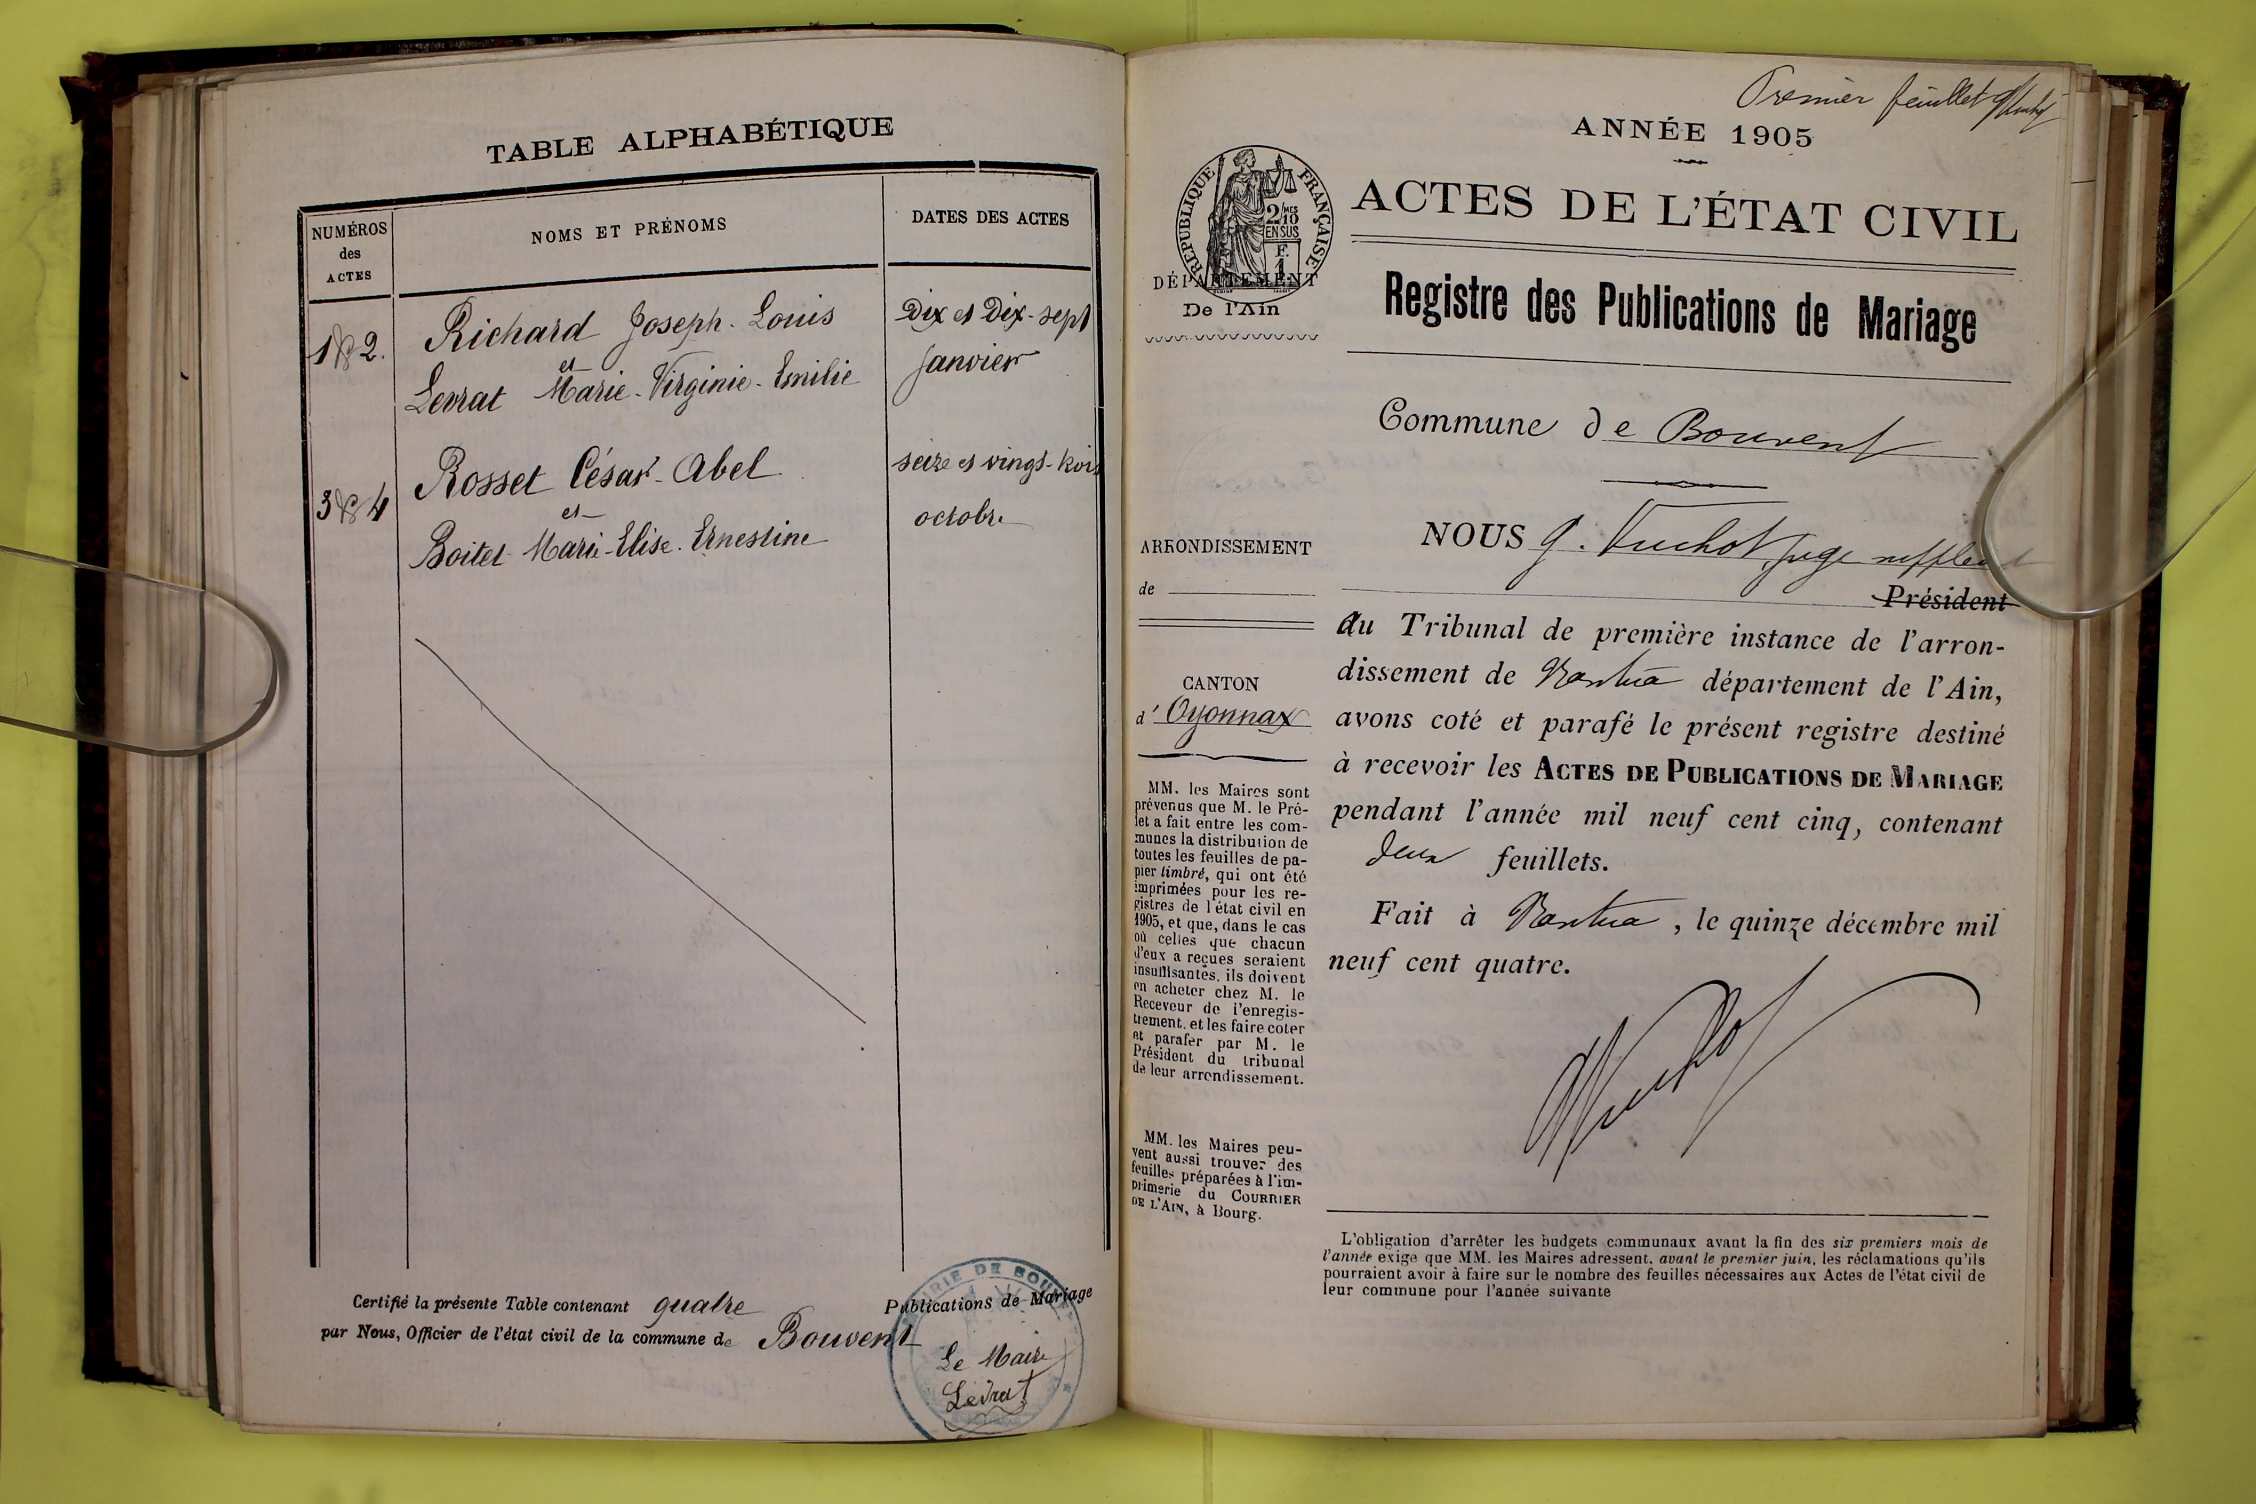 TABLE ALPHABÉTIQUE
NUMÉROS
des
ACTES
NOMS ET PRÉNOMS
DATES DES ACTES
1 & 2.
Richard Joseph-Louis
et
Levrat Marie-Virginie-Emilie
Dix et Dix-sept
janvier
3 & 4
Rosset César-Abel
et
Boitet Marie-Elise-Ernestine
seize et vingt-trois
octobre
Certifié la présente Table contenant quatre Publications de Mariage
par Nous, Officier de l'état civil de la commune de Bouvent
MAIRIE DE BOUVENT
Le Maire
Levrat
Premier feuillet
ANNÉE 1905
RÉPUBLIQUE FRANÇAISE
2/MES
10
EN SUS
F.
1
ACTES DE L'ÉTAT CIVIL
DÉPARTEMENT
De l'Ain
Registre des Publications de Mariage
Commune de Bouvent
ARRONDISSEMENT
de
CANTON
d' Oyonnax
MM. les Maires sont
prévenus que M. le Pré-
fet a fait entre les com-
munes la distribution de
toutes les feuilles de pa-
pier timbré, qui ont été
imprimées pour les re-
gistres de l'état civil en
1905, et que, dans le cas
où celles que chacun
d'eux a reçues seraient
insuffisantes, ils doivent
en acheter chez M. le
Receveur de l'enregis-
trement, et les faire coter
et parafer par M. le
Président du tribunal
de leur arrondissement.
MM. les Maires peu-
vent aussi trouver des
feuilles préparées à l'im-
primerie du COURRIER
DE L'AIN, à Bourg.
NOUS G. Vuchot, juge suppléant
Président
du Tribunal de première instance de l'arron-
dissement de Nantua département de l'Ain,
avons coté et parafé le présent registre destiné
à recevoir les ACTES DE PUBLICATIONS DE MARIAGE
pendant l'année mil neuf cent cinq, contenant
deux feuillets.
Fait à Nantua, le quinze décembre mil
neuf cent quatre.
L'obligation d'arrêter les budgets communaux avant la fin des six premiers mois de
l'année exige que MM. les Maires adressent, avant le premier juin, les réclamations qu'ils
pourraient avoir à faire sur le nombre des feuilles nécessaires aux Actes de l'état civil de
leur commune pour l'année suivante